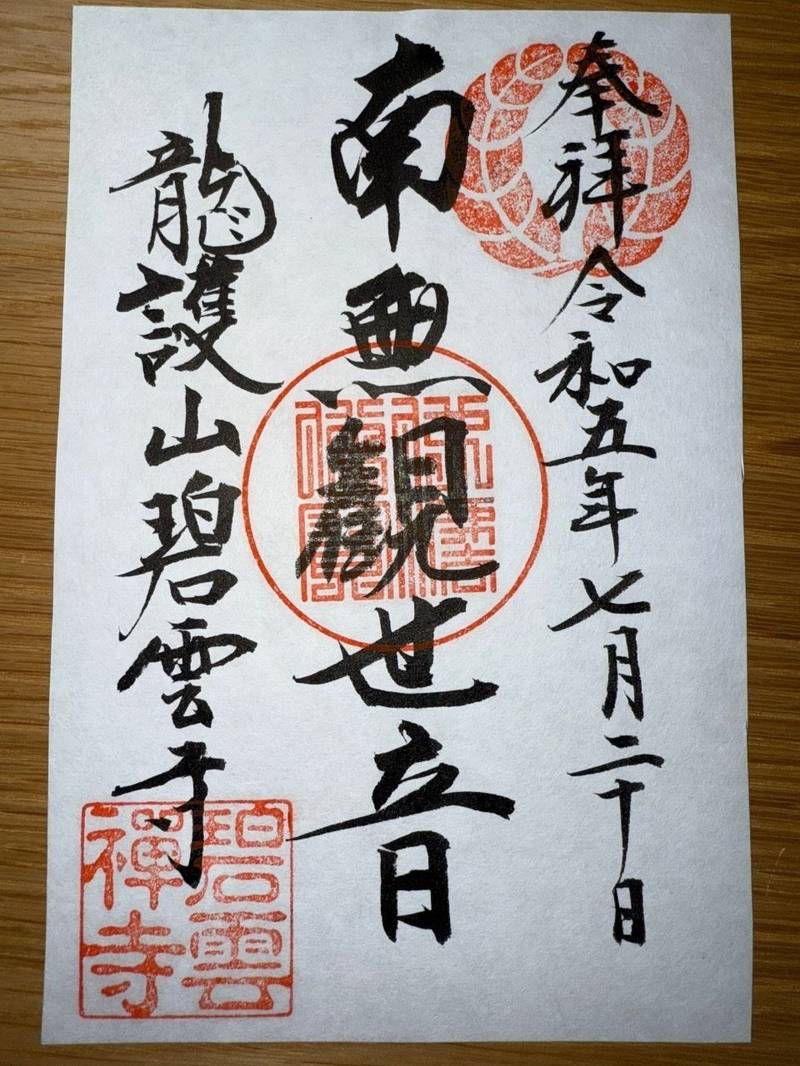 奉拝 令和五年七月二十日
南無觀世音
龍護山碧雲寺
碧雲
禅寺